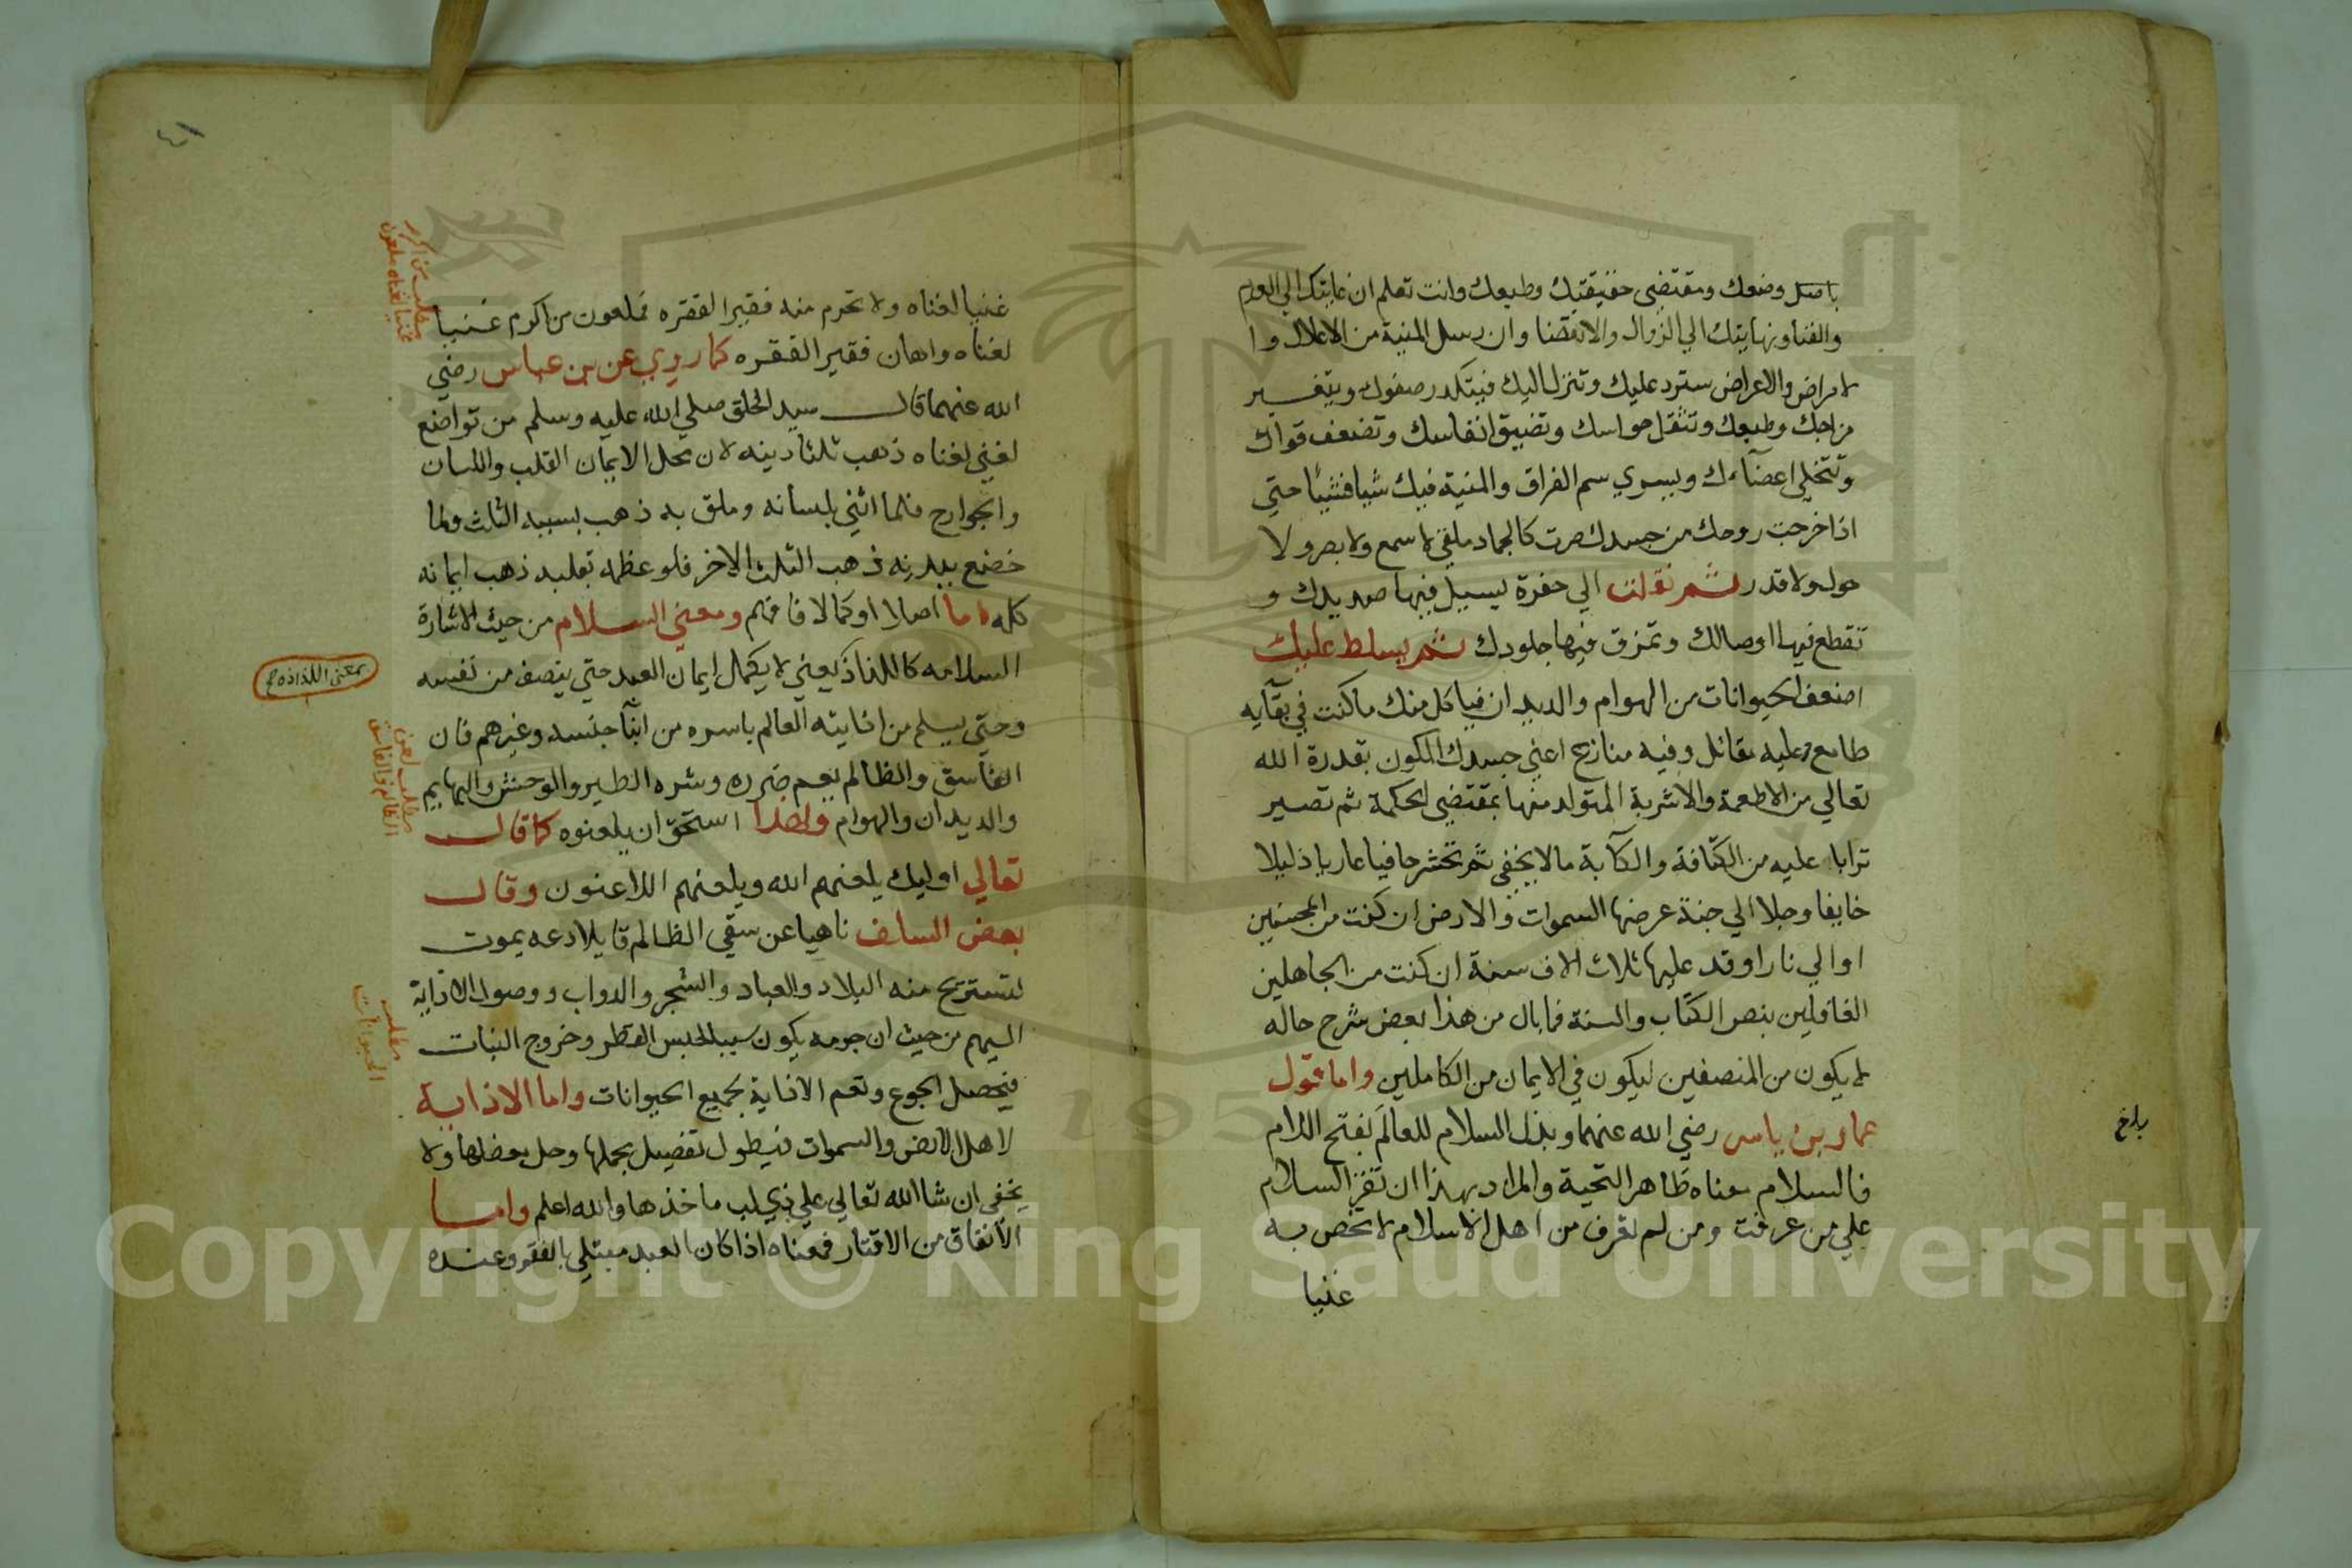 باصل وضعك ومقتضى حقيقتك وطبعك وانت تعلم ان غايتك الي العدم
والفنا ونهايتك الي الزوال والانقضا وان رسل المنية من الاعلال وا
لامراض والاعراض سترد عليك وتنزل اليك فيتكدر صفوك ويتغير
مزاجك وطبعك وتثقل حواسك وتضيق انفاسك وتضعف قواك
وتتخلي اعضآءك ويسري سم الفراق والمنية فيك شيا فشيئا حتي
اذا خرجت روحك من جسدك صرت كالجماد ملقي لا سمع ولا بصر ولا
حول ولا قدر ثم نقلت الي حفرة يسيل فيها صديدك و
تقطع فيها اوصالك وتمزق فيها جلودك ثم يسلط عليك
اضعف الحيوانات من الهوام والديدان فياكل منك ما كنت في بقآيه
طامع وعليه تقاتل وفيه منازع اعني جسدك المكون بقدرة الله
تعالي من الاطعمة والاشربة المتولد منها بمقتضى الحكمة ثم تصير
ترابا عليه من الكثافة والكآبة ما لا يخفى ثم تحشر حافيا عاريا ذليلا
خايفا وجلا الي جنة عرضها السموات والارض ان كنت من المحسنين
او الي نار اوقد عليها ثلاث الاف سنة ان كنت من الجاهلين
الغافلين بنص الكتاب والسنة فما بال من هذا بعض شرح حاله
لا يكون من المنصفين ليكون في الايمان من الكاملين واما قول
عمار بن ياسر رضي الله عنهما وبذل السلام للعالَم بفتح اللام
فالسلام معناه ظاهر التحية والمراد بهذا ان تقرا السلام
علي من عرفت ومن لم تعرف من اهل الاسلام لا تخص به
غنيا
بلغ
٤١
غنيا لغناه ولا تحرم منه فقيرا لفقره فملعون من اكرم غنيا
لغناه واهان فقيرا لفقره كما روي عن بن عباس رضي
الله عنهما قال سيد الخلق صلي الله عليه وسلم من تواضع
لغني لغناه ذهب ثلثا دينه لان محل الايمان القلب واللسان
والجوارح فلما اثني بلسانه وملق به ذهب بسببه الثلث ولما
خضع ببدنه ذهب الثلث الاخر فلو عظمه بقلبه ذهب ايمانه
كله اما اصلا او كمالا فافهم ومعني السلام من حيث الاشارة
السلامه كاللذاذ يعني لا يكمل ايمان العبد حتي ينصف من نفسه
وحتي يسلم من اذايته العالم باسره من ابنآ جنسه وغيرهم فان
الفاسق والظالم يعم ضرره وشره الطير والوحش والبهايم
والديدان والهوام ولهذا استحق ان يلعنوه كما قال
تعالي اوليك يلعنهم الله ويلعنهم اللاعنون وقال
بعض السلف ناهيا عن سقي الظالم قايلا دعه يموت
لتستريح منه البلاد والعباد والشجر والدواب ووصول الاذاية
اليهم من حيث ان جرمه يكون سببا لحبس القطر وخروج النبات
فيحصل الجوع وتعم الاذاية بجميع الحيوانات واما الاذاية
لاهل الارض والسموات فيطول تفصيل مجملها وحل معضلها ولا
يخفى ان شا الله تعالي علي ذي لب ماخذها والله اعلم واما
الانفاق من الاقتار فمعناه اذا كان العبد مبتلي بالفقر وعنده
مطلب من اكرم
غنيا لغناه ملعون
بمعني اللذاذه
مطلب لعن
الظالم والفاسق
مطلب
الحيوانات
Copyright © King Saud University
195